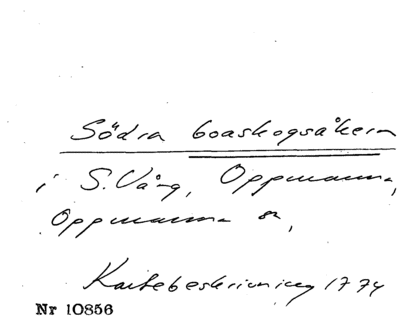 Södra boaskogsåkern
i S. Vång, Oppmanna,
Oppmanna sn,
Kartebeskrivning 1774
Nr 10856